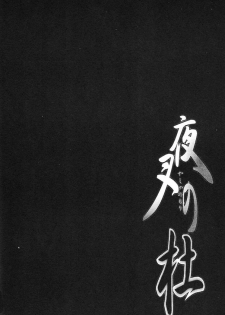 夜叉の杜